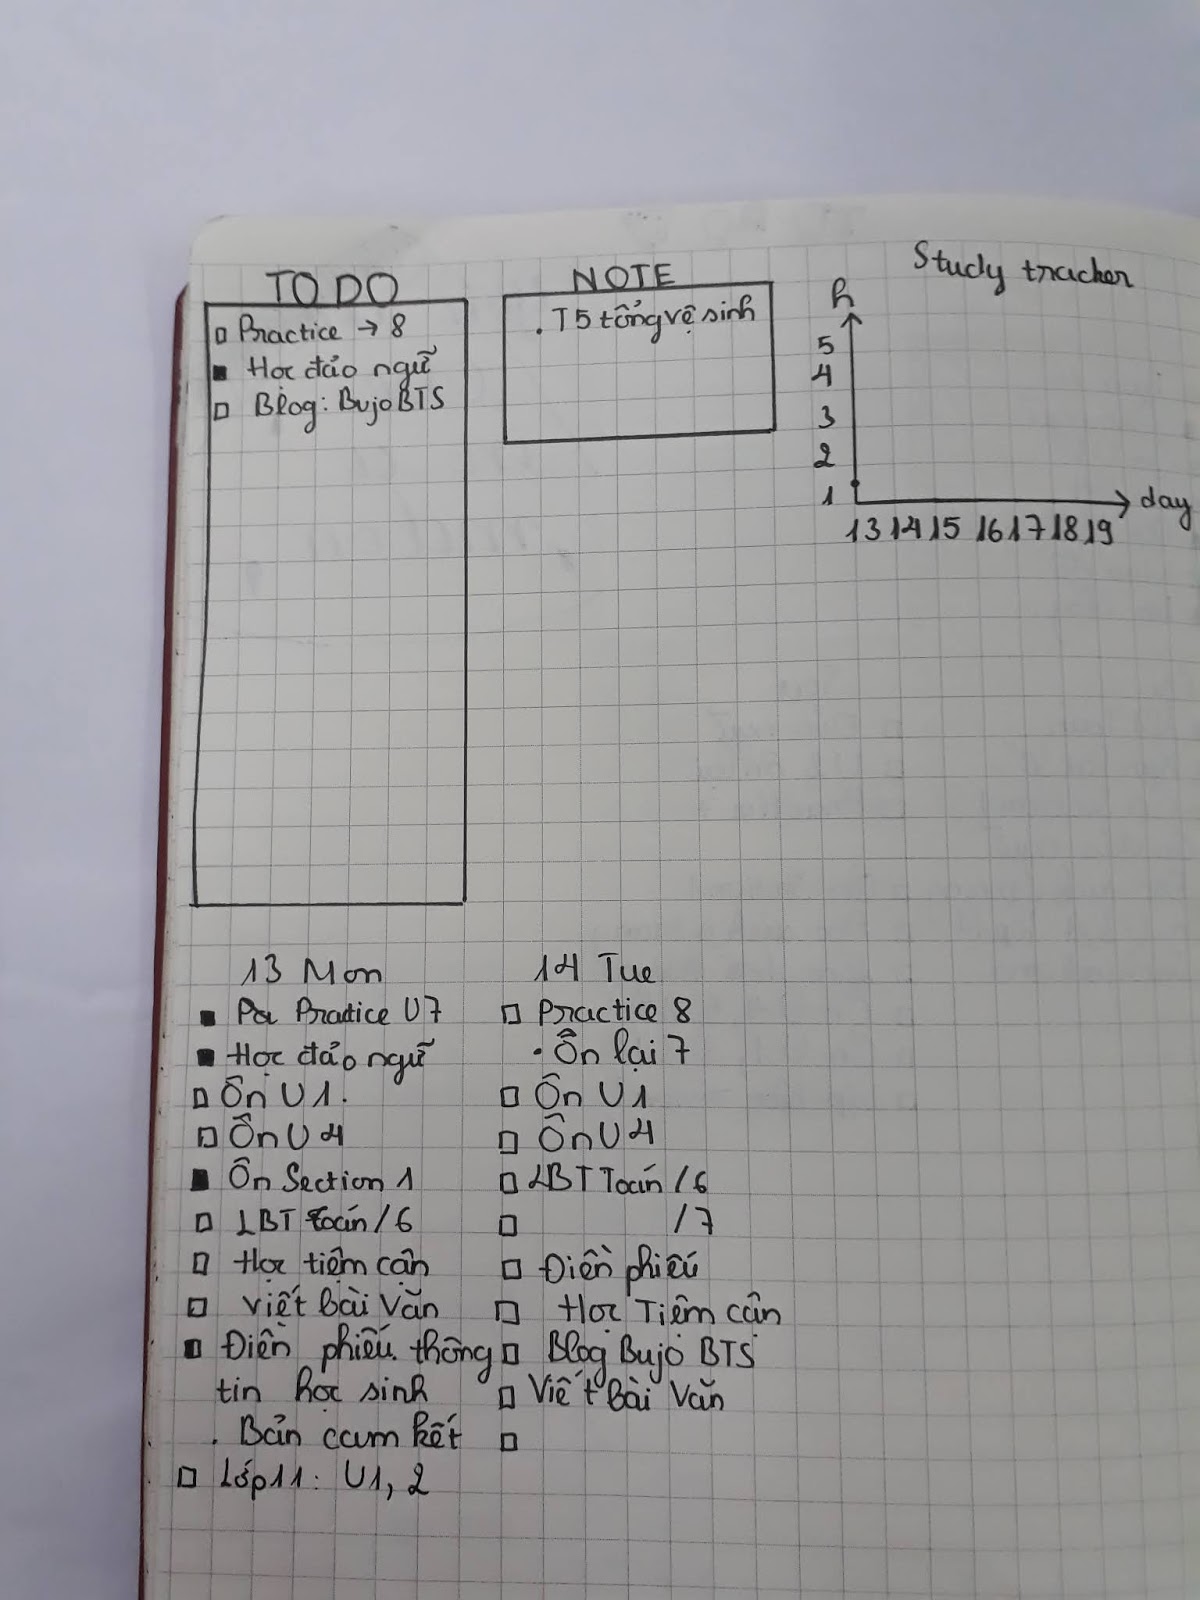 TO DO
Practice → 8
Học đảo ngữ
Blog: Bujo BTS
NOTE
. T5 tổng vệ sinh
Study tracker
h
5
4
3
2
1
day
13 14 15 16 17 18 19
13 Mon
Practice U7
Học đảo ngữ
Ôn U1.
Ôn U4
Ôn Section 1
LBT toán/6
Học tiệm cận
Viết bài văn
Điền phiếu thông
tin học sinh
. Bản cam kết
Lớp 11: U1, 2
14 Tue
Practice 8
. Ôn lại 7
Ôn U1
Ôn U4
LBT Toán /6
/7
Điền phiếu
Học Tiệm cận
Blog Bujo BTS
Viết Bài Văn